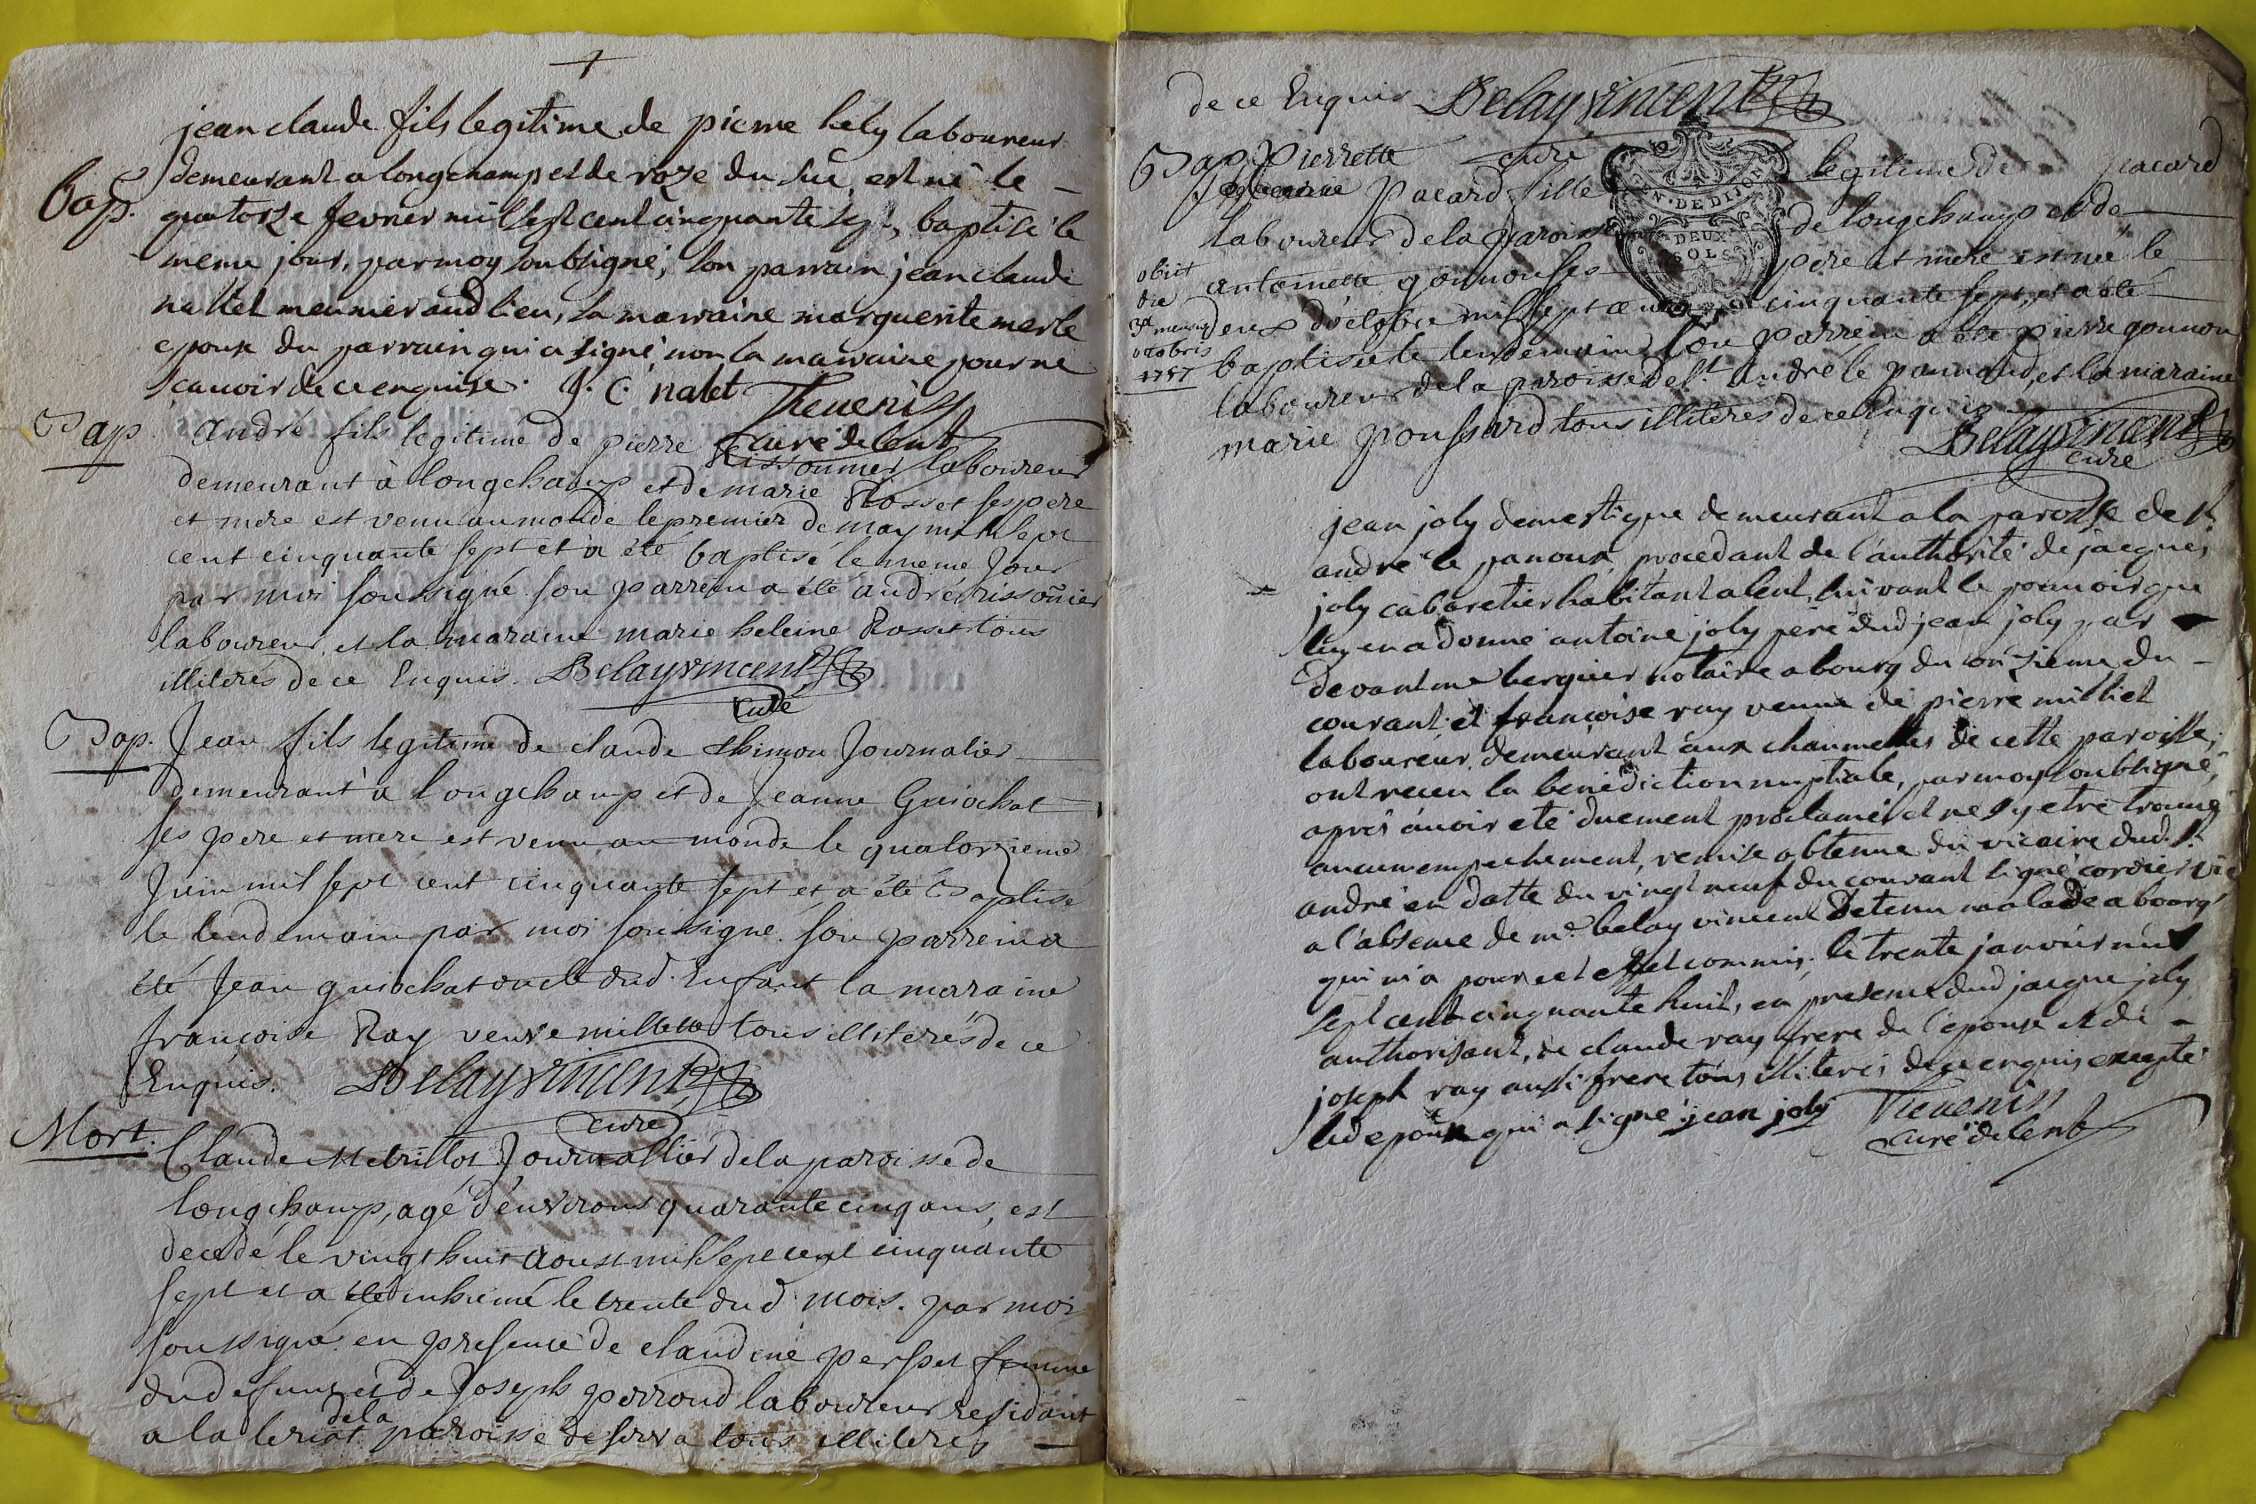 jean claude fils legitime de pierre hely laboureur
Bap. demeurant a longchamp et de roze du suc, est né le
quatorze fevrier mil sept cent cinquante sept, baptisé le
meme jour, par moy soubsigné, son parrain jean claude
nallet meunier aud lieu, sa marraine marguerite merle
epouse du parrain qui a signé non la marraine pour ne
scavoir de ce enquise. J. C. nalet Thevenin
curé de lent
Bap André fils legitime de pierre Rissonnier laboureur
demeurant à longchamp et de marie Rosset ses pere
et mere est venu au monde le premier de may mil sept
cent cinquante sept et à été baptisé le meme Jour
par moi soussigné son parrein a été andré rissoñier
laboureur, et la maraine marie heleine Rosset tous
illiterés de ce Enquis. Delayvincent
Curé
Bap. Jean fils legitime de claude thimon Journalier
demeurant à longchamp et de Jeanne Guiochat
ses pere et mere est venu au monde le quatorzieme
Juin mil sept cent cinquante sept et a été Baptisé
le lendemain par moi soussigné. son parrein a
été Jean guiochat oncle dud. Enfant la maraine
françoise Ray veuve millet tous illiterés de ce
Enquis. Delayvincent
curé
Mort. Claude Metrillot Journallier de la paroisse de
longchamp, agé d'environs quarante cinq ans, est
decedé le vingt huit Aoust mil sept cent cinquante
sept et a été inhumé le trente dud. mois. par moi
soussigné en presence de claudine persset femme
du deffunt et de Joseph perroud laboureur residant
a la leriat de la paroisse de serva tous illiterés
de ce Enquis Delayvincent
curé
Bap Pierrette
Pacard fille legitime de pacard
laboureur de la paroisse de longchamp et de
antoinette gonnon ses pere et mere est née le
deux d'octobre mil sept cent cinquante sept, et a été
baptisée le lendemain son parrein a été pierre gonnon
laboureur de la paroisse de st. andré le pannoud, et la maraine
marie poussard tous illiteres de ce Enquis
obiit
die
3a mensis
octobris
1757
Delayvincent
curé
jean joly domestique demeurant a la paroisse de st.
andré le panoux, procedant de l'authorité de jacques
joly cabaretier habitant a lent, suivant le pouvoir que
luy en a donné antoine joly pere dud jean joly par
devant me berguier notaire a bourg du onzieme du
courant, et françoise ray veuve de pierre milliet
laboureur demeurant aux chaumettes de cette paroisse,
ont receu la benediction nuptiale, par moy soubsigné,
aprés avoir eté duement proclamés et ne s'y etre trouvé
aucun empechement, remise obtenue du vicaire dud. st.
andré en datte du vingt neuf du courant signé cordier vic.
a l'absence de mr. belay vincent detenu malade a bourg
qui m'a pour cet effet commis, le trente janvier mil
sept cent cinquante huit, en presence dud jacque joly
authorisant, de claude ray frere de l'epouse et de
joseph ray aussi frere tous illiterés de ce enquis excepté
led epoux qui a signé. jean joly Thevenin
curé de lent
N. DE DIJON
DEUX
SOLS